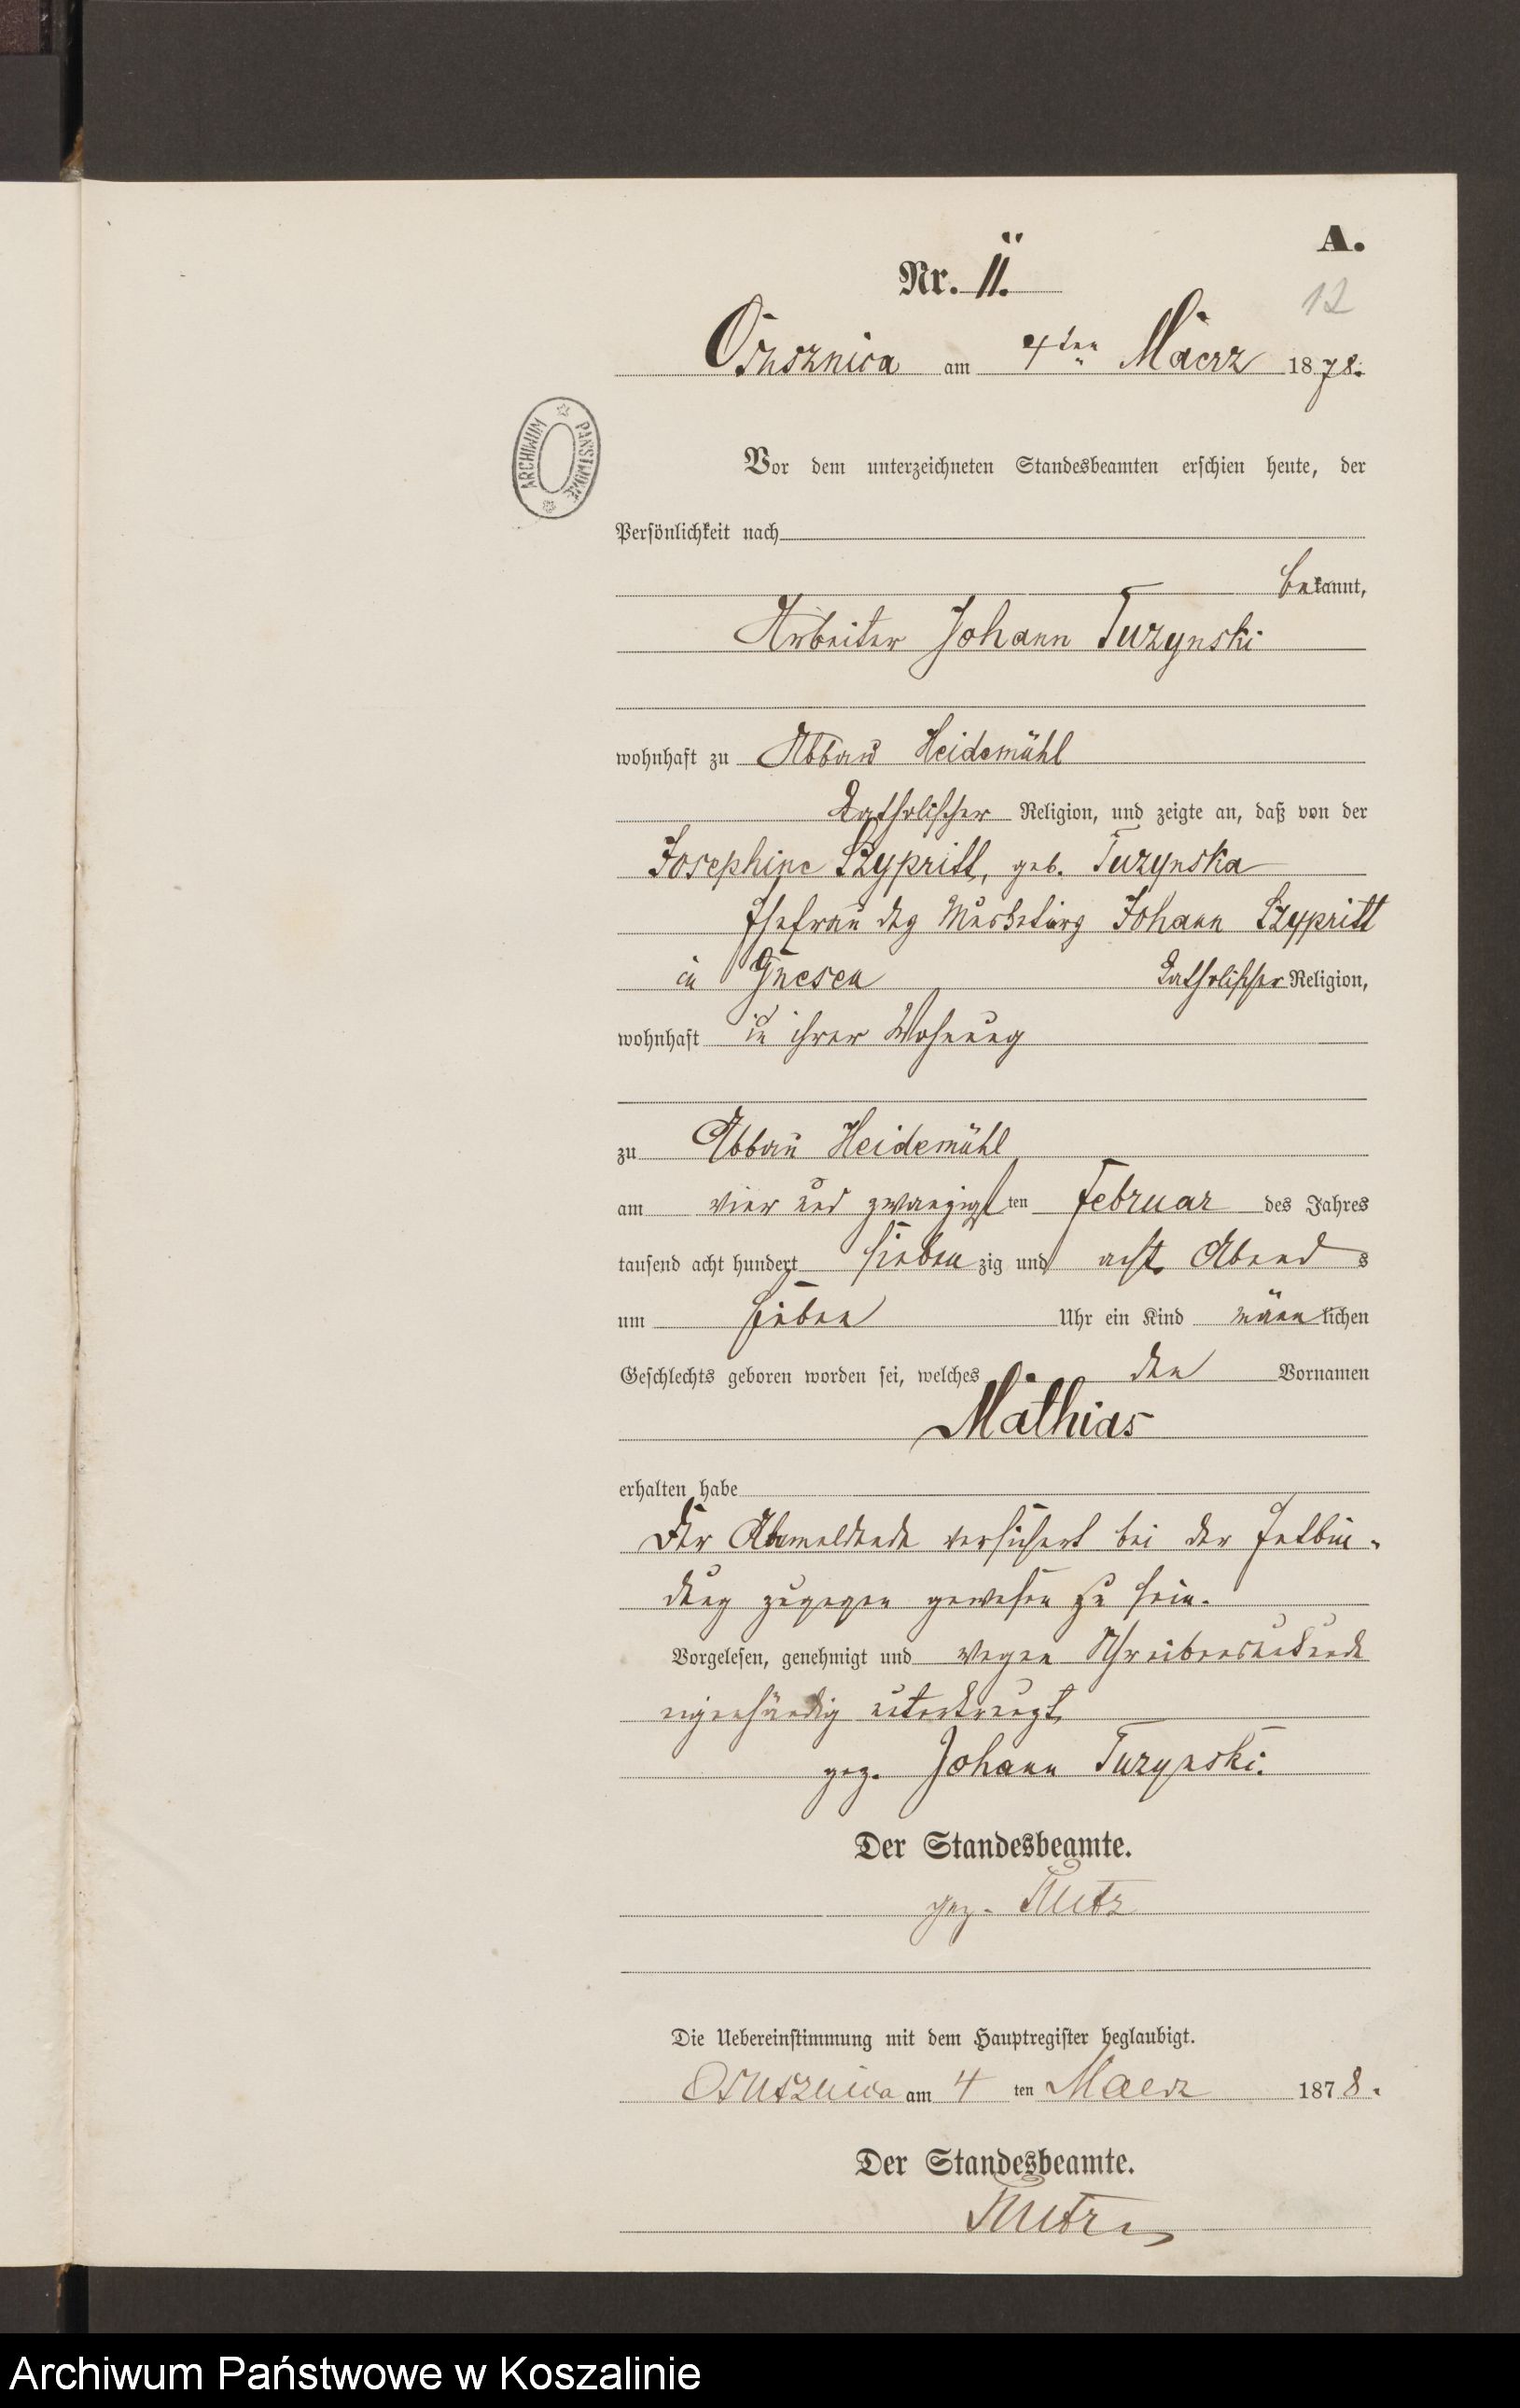 A.
Nr. 11.
12
Osusznica am 4ten Maerz 1878.
ARCHIWUM PAŃSTWOWE
Vor dem unterzeichneten Standesbeamten erschien heute, der
Persönlichkeit nach
bekannt,
Arbeiter Johann Tuzynski
wohnhaft zu Abbau Heidemühl
Katholischer Religion, und zeigte an, daß von der
Josephine Szypritt, geb. Tuzynska
Ehefrau des Musketiers Johann Szypritt
in Gnesen Katholischer Religion,
wohnhaft in ihrer Wohnung
zu Abbau Heidemühl
am vier und zwanzigsten Februar des Jahres
tausend acht hundert siebenzig und acht Abends
um sieben Uhr ein Kind männlichen
Geschlechts geboren worden sei, welches den Vornamen
Mathias
erhalten habe
Der Anmeldende versichert bei der Entbin-
dung zugegen gewesen zu sein.
Vorgelesen, genehmigt und wegen Schreibensunkunde
eigenhändig unterkreuzt
gez. Johann Tuzynski.
Der Standesbeamte.
gez.
Die Uebereinstimmung mit dem Hauptregister beglaubigt.
Osusznica am 4 ten Maerz 1878.
Der Standesbeamte.
Archiwum Państwowe w Koszalinie